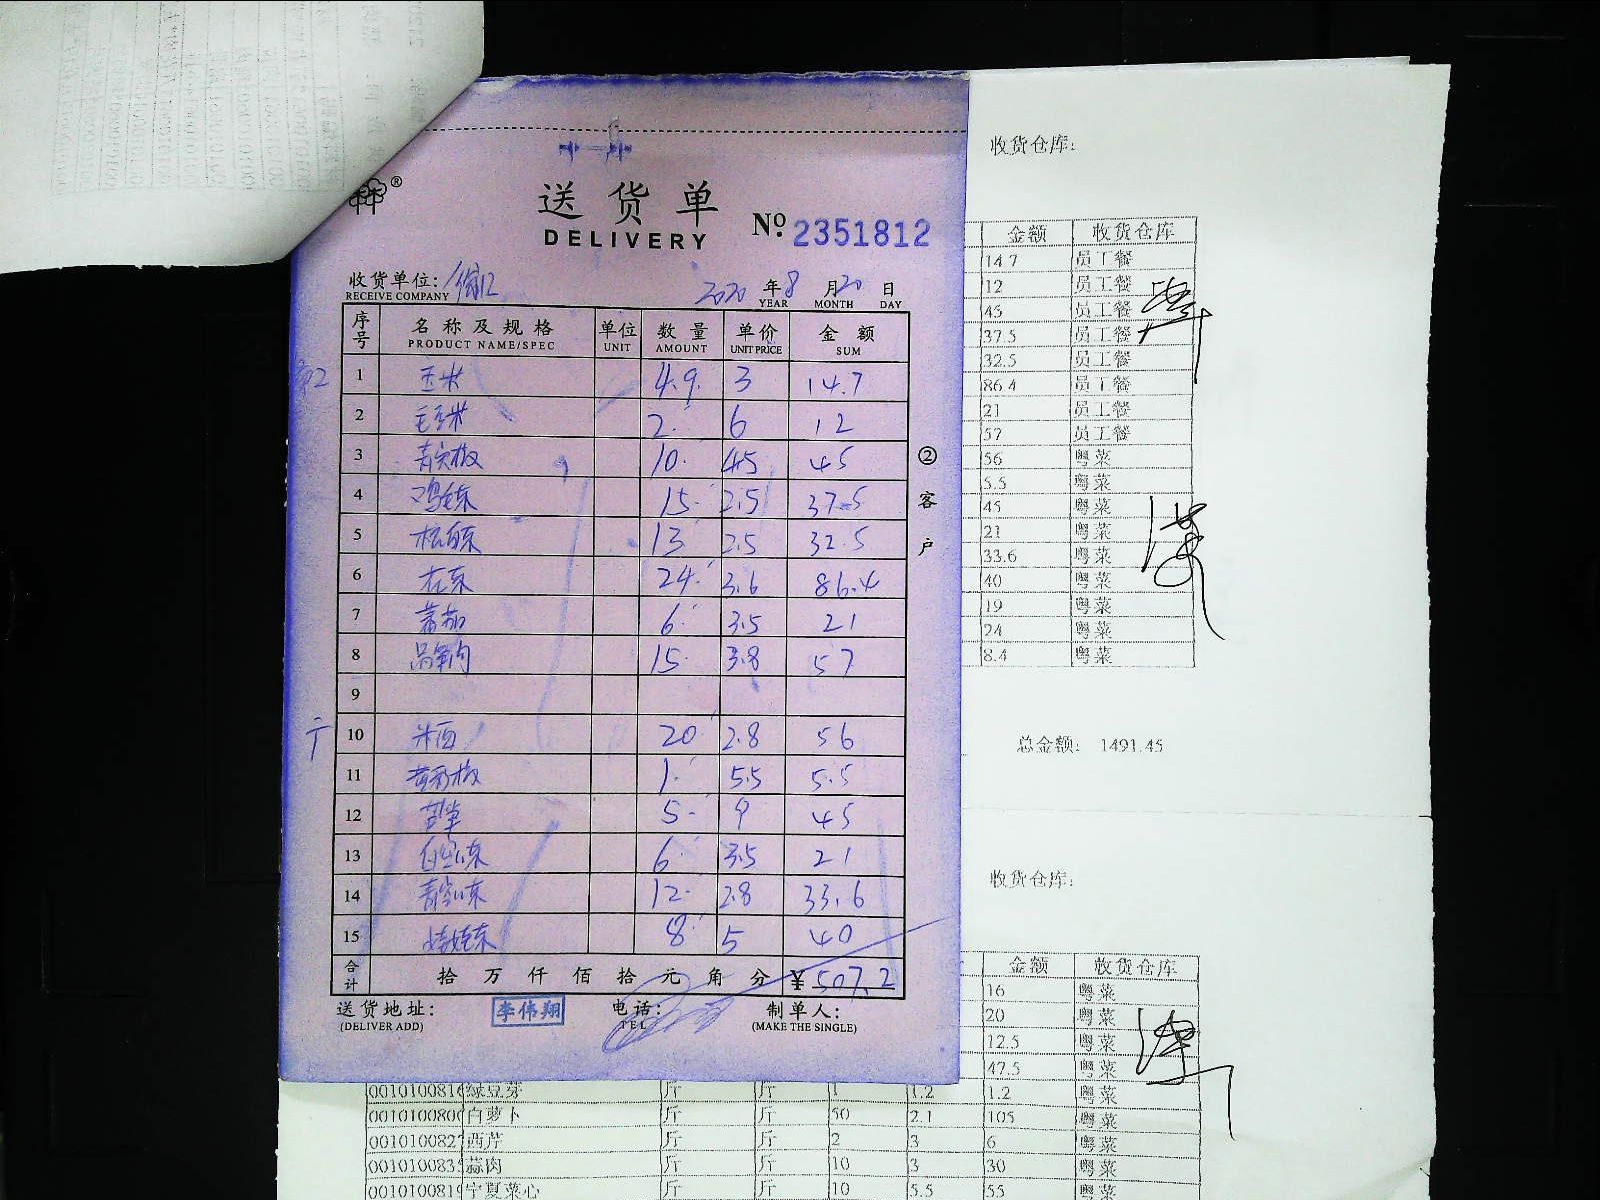 送货单
DELIVERY
No. 2351812
收货单位:
RECEIVE COMPANY
2020 年 8 月 20 日
YEAR MONTH DAY
序号 名称及规格 单位 数量 单价 金额
PRODUCT NAME/SPEC UNIT AMOUNT UNIT PRICE SUM
1 玉米 4.9 3 14.7
2 2 6 12
3 青尖椒 10 4.5 45
4 鸡毛菜 15 2.5 37.5
5 13 2.5 32.5
6 花菜 24 3.6 86.4
7 蕃茄 6 3.5 21
8 15 3.8 57
9
10 20 2.8 56
11 1 5.5 5.5
12 5 9 45
13 6 3.5 21
14 12 2.8 33.6
15 娃娃菜 8 5 40
合计 拾 万 仟 佰 拾 元 角 分 ¥507.2
② 客户
送货地址: 李伟翔 电话: 制单人:
(DELIVER ADD) TEL (MAKE THE SINGLE)
收货仓库:
金额 收货仓库
14.7 员工餐
12 员工餐
45 员工餐
37.5 员工餐
32.5 员工餐
86.4 员工餐
21 员工餐
57 员工餐
56 粤菜
5.5 粤菜
45 粤菜
21 粤菜
33.6 粤菜
40 粤菜
19 粤菜
24 粤菜
8.4 粤菜
总金额: 1491.45
收货仓库:
金额 收货仓库
16 粤菜
20 粤菜
12.5 粤菜
47.5 粤菜
绿豆芽 斤 斤 1 1.2 1.2 粤菜
白萝卜 斤 斤 50 2.1 105 粤菜
西芹 斤 斤 2 3 6 粤菜
蒜肉 斤 斤 10 3 30 粤菜
宁夏菜心 斤 斤 10 5.5 55 粤菜